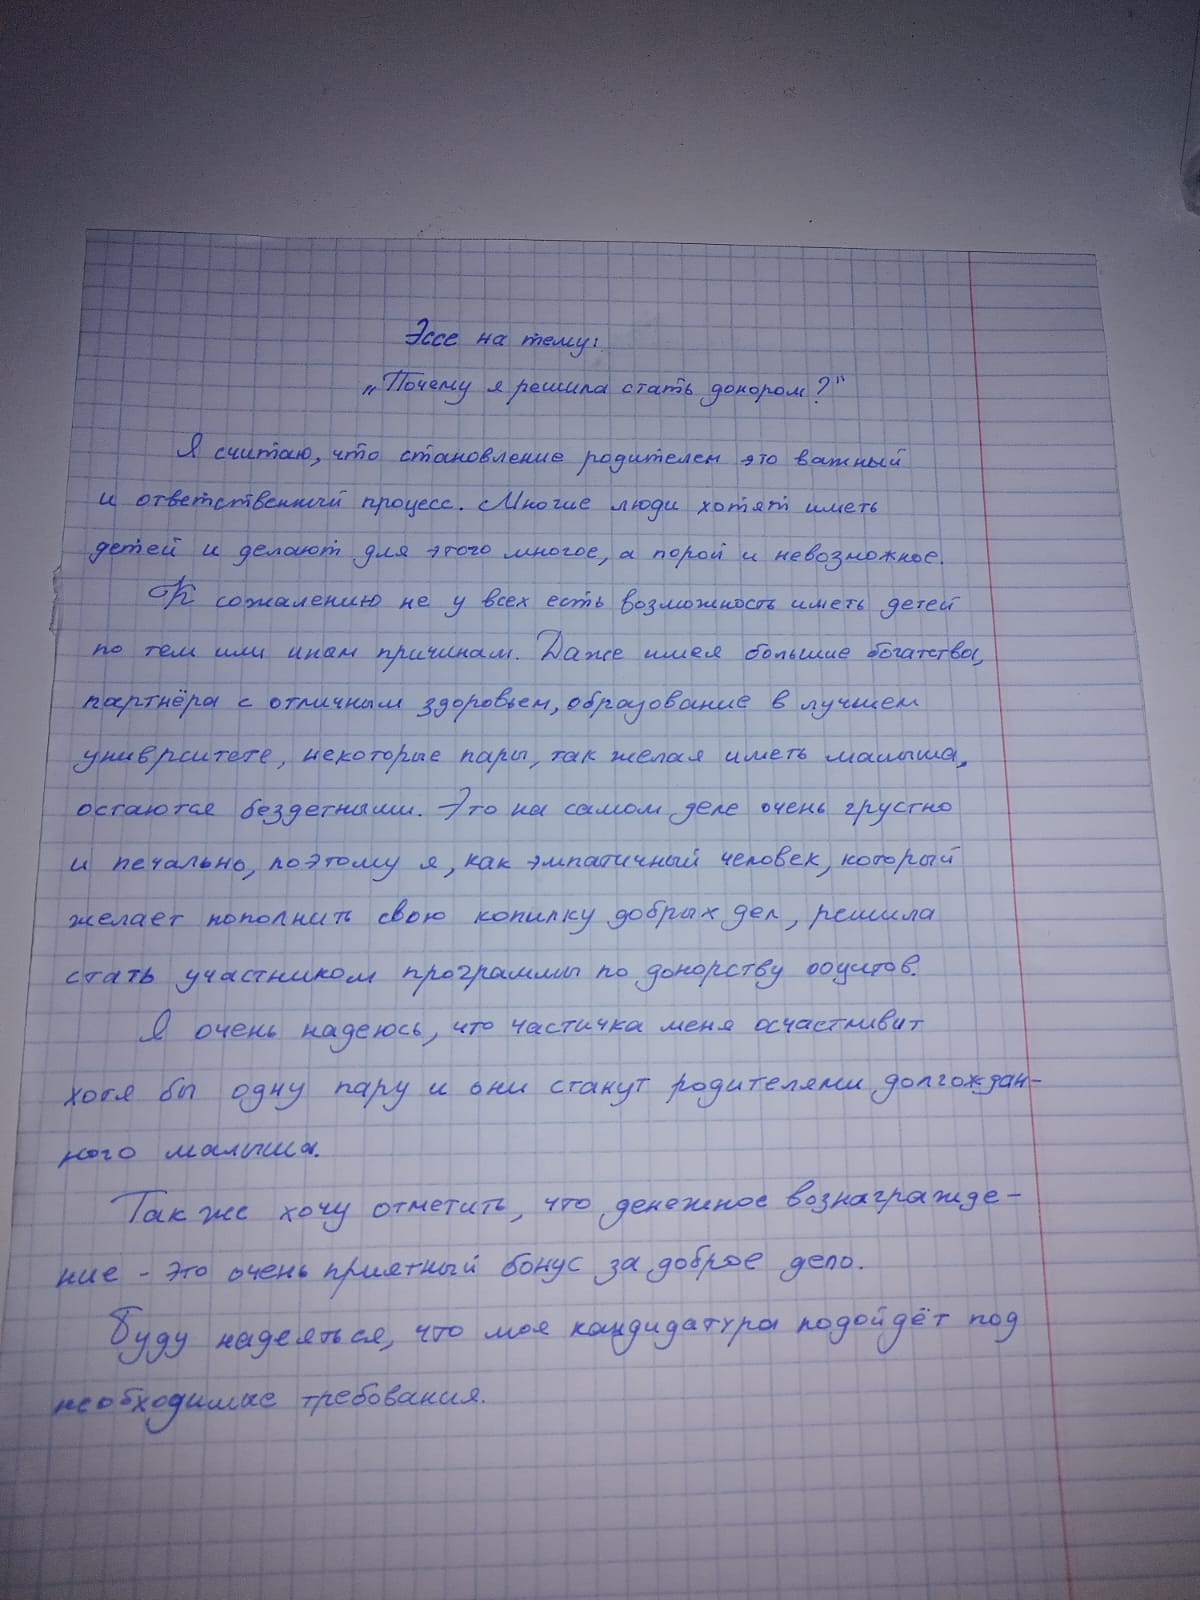 Эссе на тему:
„Почему я решила стать донором?"
Я считаю, что становление родителем это важный
и ответственный процесс. Многие люди хотят иметь
детей и делают для этого многое, а порой и невозможное.
К сожалению не у всех есть возможность иметь детей
по тем или иным причинам. Даже имея большие богатства,
партнёра с отличным здоровьем, образование в лучшем
универститете, некоторые пары, так желая иметь малыша,
остаются бездетными. Это на самом деле очень грустно
и печально, поэтому я, как эмпатичный человек, который
желает пополнить свою копилку добрых дел, решила
стать участником программы по донорству ооцитов.
Я очень надеюсь, что частичка меня осчастливит
хотя бы одну пару и они станут родителями долгождан-
ного малыша.
Так же хочу отметить, что денежное вознагражде-
ние - это очень приятный бонус за доброе дело.
Буду надеяться, что моя кандидатура подойдёт под
необходимые требования.